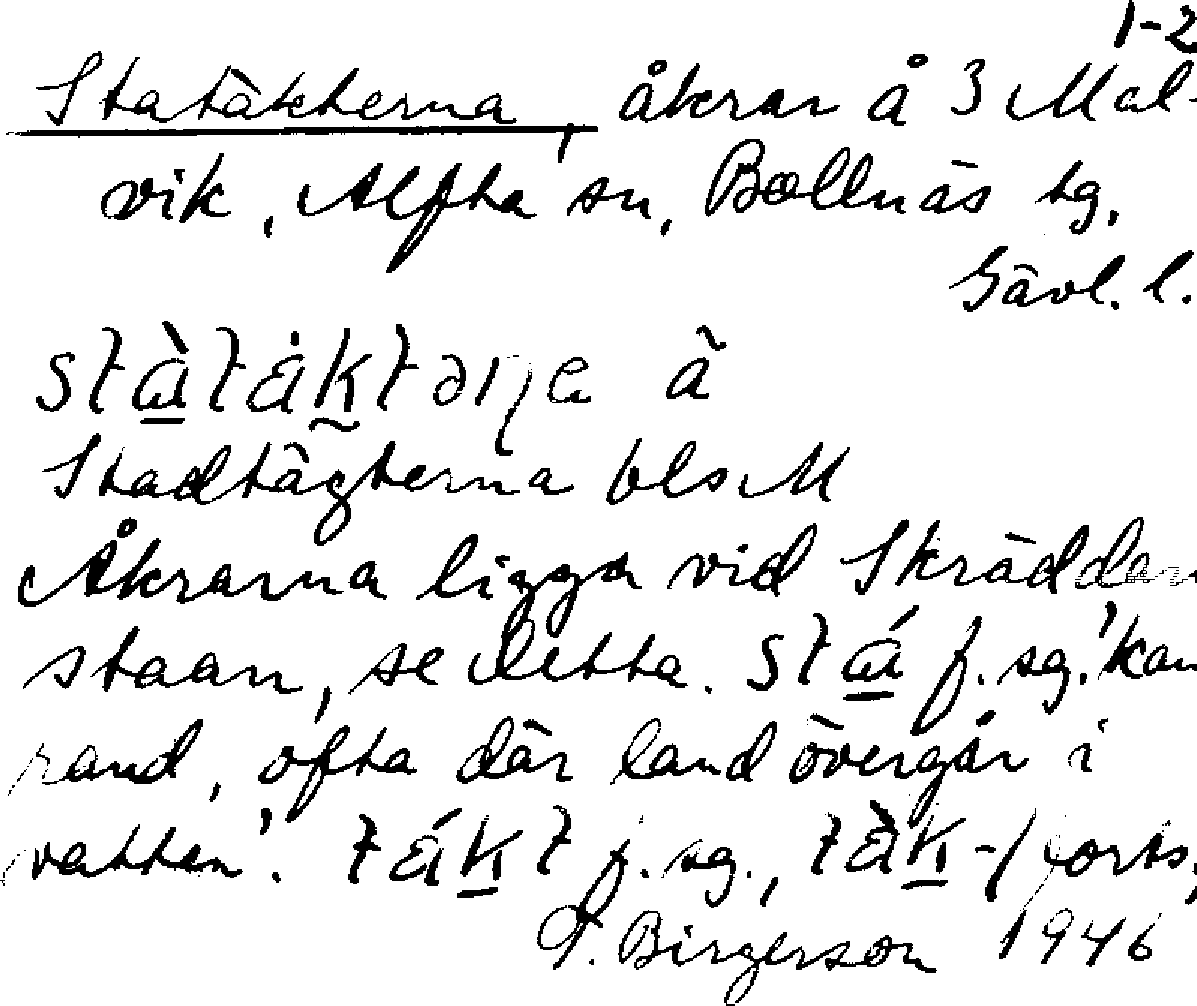 1-2
Statäkterna, åkrar å 3 Mal-
vik, Alfta sn, Bollnäs tg,
Gävl. l.
stàtåktəṇa ã
Stadtägterna blsM
Åkrarna ligga vid Skräddar
staan, se detta. stá f. sg. 'kan
rand, ofta där land övergår i
vatten'. tákt f. sg., tàk- forts,
Birgerson 1946